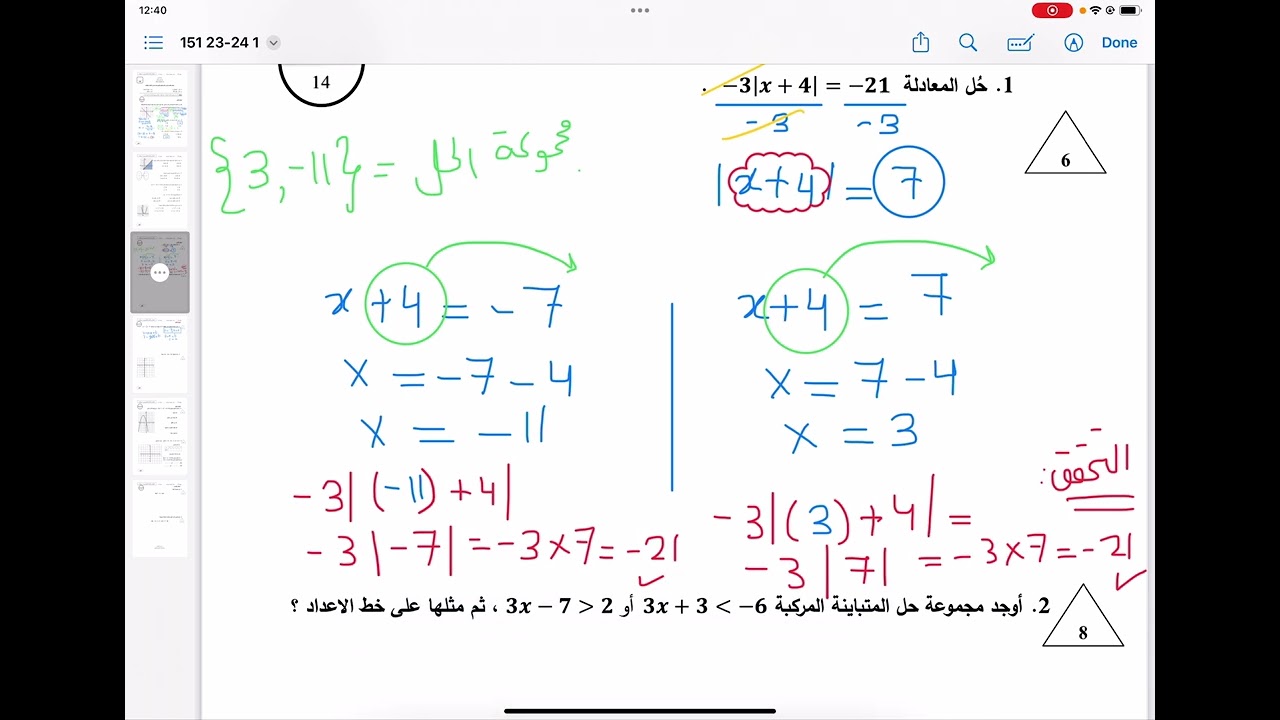 12:40
151 23-24 1
Done
14
1. حُل المعادلة −3|x + 4| = −21 .
-3 -3
6
|x+4| = 7
{3, -11} = مجموعة الحل
x+4 = 7
x = 7-4
x = 3
x+4 = -7
x = -7-4
x = -11
التحقق:
-3|(3)+4| =
-3|7| = -3×7 = -21 ✓
-3|(-11)+4|
-3|-7| = -3×7 = -21 ✓
2. أوجد مجموعة حل المتباينة المركبة 3x + 3 < −6 أو 3x − 7 > 2 ، ثم مثلها على خط الاعداد ؟
8